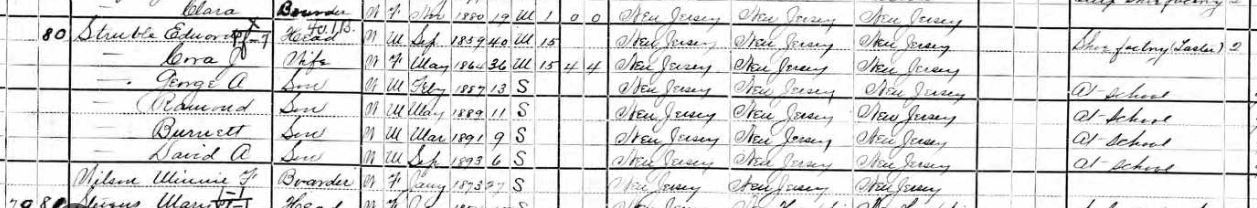 Clara Boarder W F Nov 1880 19 M 1 0 0 New Jersey New Jersey New Jersey
80 Struble Edward Head W M Sep 1859 40 M 15 New Jersey New Jersey New Jersey Shoe factory (Laster) 2
— Cora J Wife W F May 1864 36 M 15 4 4 New Jersey New Jersey New Jersey
— George A Son W M Feby 1887 13 S New Jersey New Jersey New Jersey At school
— Raimond Son W M May 1889 11 S New Jersey New Jersey New Jersey At school
Burnett Son W M Mar 1891 9 S New Jersey New Jersey New Jersey At school
— David A Son W M Sep 1893 6 S New Jersey New Jersey New Jersey At school
Wilson Minnie F Boarder W F Jany 1873 27 S New Jersey New Jersey New Jersey
Mary Head W F